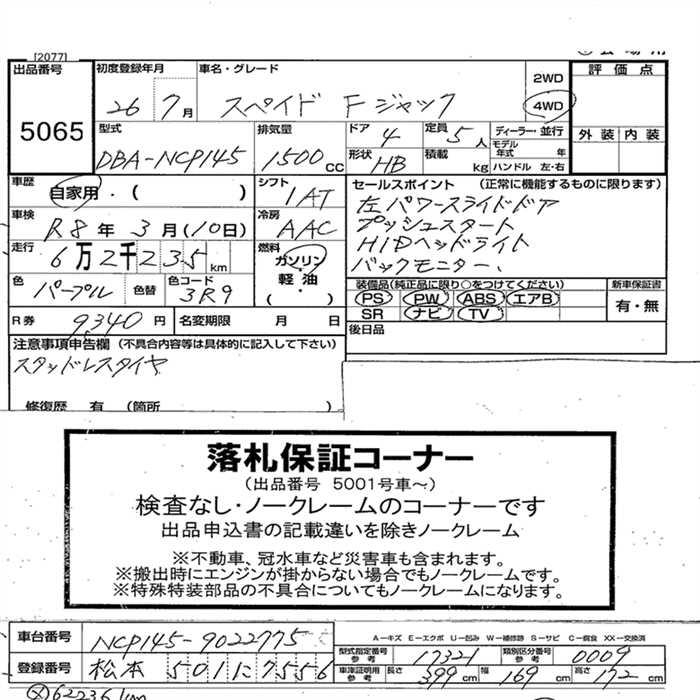 [2077]
出品番号 5065
初度登録年月 26 7月
車名・グレード スペイド Fジャック
2WD
4WD
評価点
外装 内装
型式 DBA-NCP145
排気量 1500 CC
ドア 4 定員 5人
形状 HB 積載 kg
ディーラー・並行
モデル年式 年
ハンドル 左・右
車歴 自家用・( )
シフト 1AT
セールスポイント (正常に機能するものに限ります)
左パワースライドドア
プッシュスタート
HIDヘッドライト
バックモニター、
車検 R8年3月(10日)
冷房 AAC
走行 6万2千235km
燃料 ガソリン・軽油・( )
色 パープル 色替 色コード 3R9
装備品(純正品に限り○をつけてください)
PS PW ABS エアB
SR ナビ TV
新車保証書
有・無
R券 9,340円 名変期限 月 日
後日品
注意事項申告欄 (不具合内容等は具体的に記入して下さい)
スタッドレスタイヤ
修復歴 有 (箇所 )
落札保証コーナー
(出品番号 5001号車～)
検査なし・ノークレームのコーナーです
出品申込書の記載違いを除きノークレーム
※不動車、冠水車など災害車も含まれます。
※搬出時にエンジンが掛からない場合でもノークレームです。
※特殊特装部品の不具合についてもノークレームになります。
A-キズ E-エクボ U-凹み W-補修跡 S-サビ C-腐食 XX-交換済
車台番号 NCP145-9022775
型式指定番号参考 17321 類別区分番号参考 0009
登録番号 松本 501に7556
車庫証明用参考 長さ 399cm 幅 169cm 高さ 172cm
②62236km